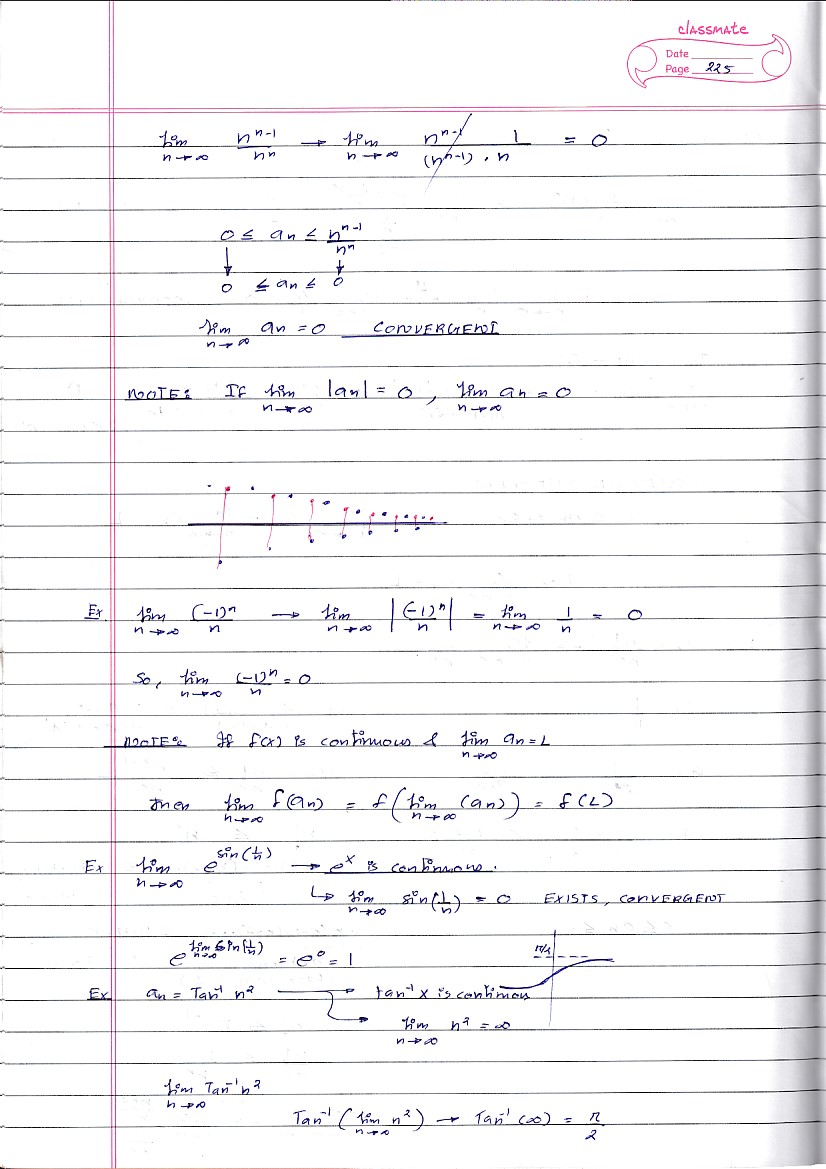 classmate
Date
Page 225
lim n→∞ n^(n-1)/n^n → lim n→∞ n^(n-1)/((n^(n-1)) . n) 1 = 0
0 ≤ an ≤ n^(n-1)/n^n
↓ ↓
0 ≤ an ≤ 0
lim n→∞ an = 0 CONVERGENT
NOTE: If lim n→∞ |an| = 0 , lim n→∞ an = 0
Ex lim n→∞ (-1)^n/n → lim n→∞ |(-1)^n/n| = lim n→∞ 1/n = 0
So, lim n→∞ (-1)^n/n = 0
NOTE: If f(x) is continuous & lim n→∞ an = L
Then lim n→∞ f(an) = f(lim n→∞ (an)) = f(L)
Ex lim n→∞ e^(sin(1/n)) → e^x is continuous.
↳ lim n→∞ sin(1/n) = 0 EXISTS, CONVERGENT
e^(lim n→∞ sin(1/n)) = e^0 = 1
π/2
Ex an = Tan^-1 n^2 → tan^-1 x is continuous
→ lim n→∞ n^2 = ∞
lim n→∞ Tan^-1 n^2
Tan^-1 (lim n→∞ n^2) → Tan^-1 (∞) = π/2